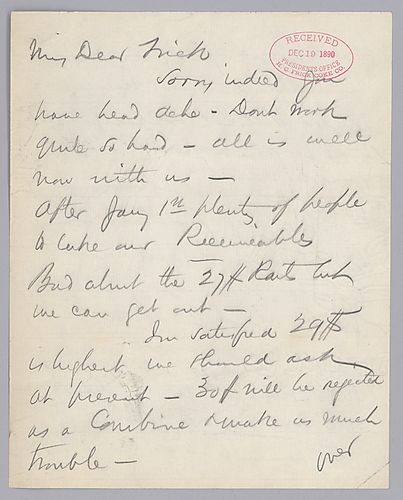 My Dear Frick
RECEIVED
DEC 19 1890
PRESIDENT'S OFFICE
H. C. FRICK COKE CO.
Sorry indeed you
have head ache - Dont work
quite so hard - all is well
now with us -
After Jany 1st plenty of people
to take our Receivables
Bad about the 27$ Rails but
we can get out -
Im satisfied 29$
is highest we should ask
at present - 30$ will be regected
as a Combine & make us much
trouble -
over